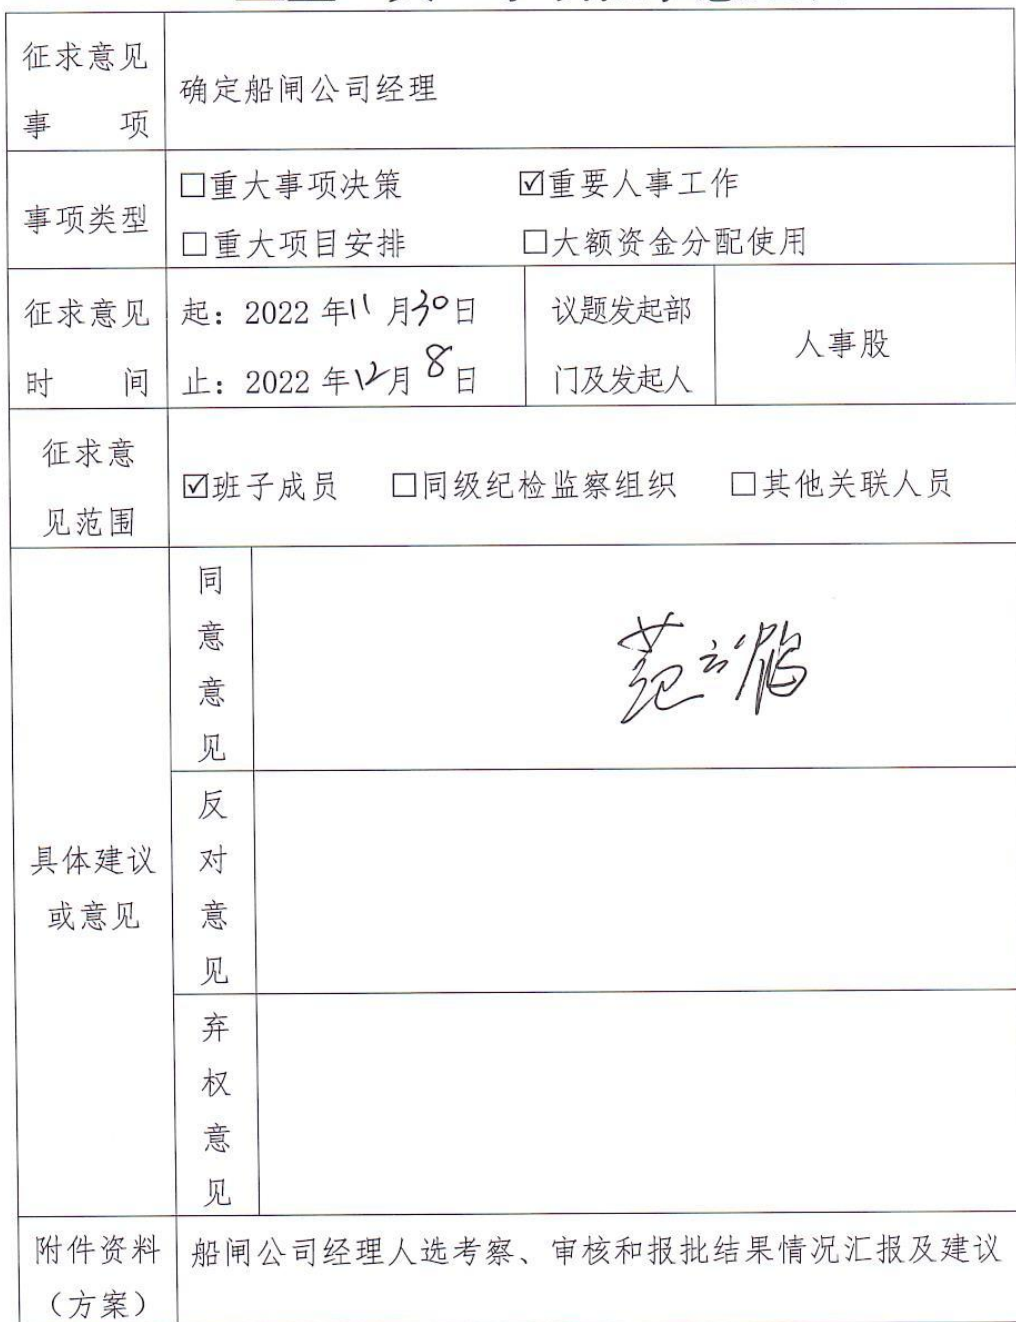 征求意见
事 项
确定船闸公司经理
事项类型
□重大事项决策 ☑重要人事工作
□重大项目安排 □大额资金分配使用
征求意见
时 间
起：2022 年11 月30日
止：2022 年12月 8 日
议题发起部
门及发起人
人事股
征求意
见范围
☑班子成员 □同级纪检监察组织 □其他关联人员
具体建议
或意见
同
意
意
见
反
对
意
见
弃
权
意
见
附件资料
（方案）
船闸公司经理人选考察、审核和报批结果情况汇报及建议